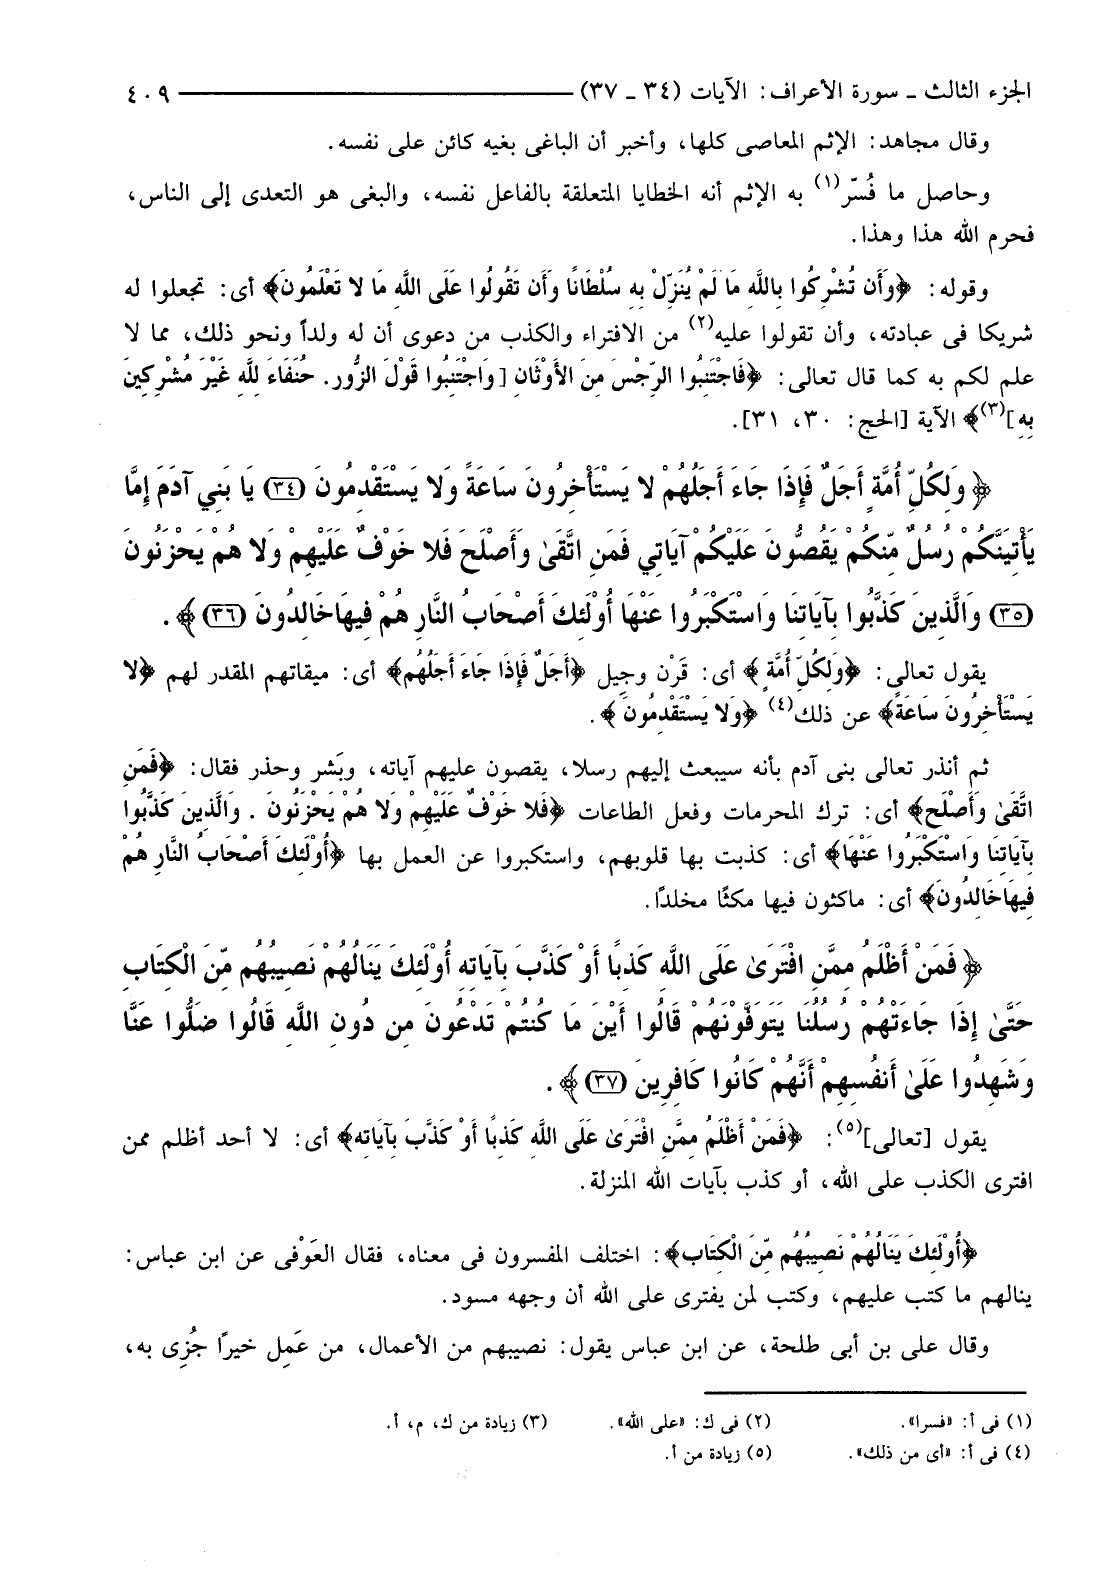 الجزء الثالث ـ سورة الأعراف: الآيات (٣٤ ـ ٣٧) ٤٠٩
وقال مجاهد: الإثم المعاصى كلها، وأخبر أن الباغى بغيه كائن على نفسه.
وحاصل ما فُسّر(١) به الإثم أنه الخطايا المتعلقة بالفاعل نفسه، والبغى هو التعدى إلى الناس،
فحرم الله هذا وهذا.
وقوله: ﴿وَأَن تُشْرِكُوا بِاللَّهِ مَا لَمْ يُنَزِّلْ بِهِ سُلْطَانًا وَأَن تَقُولُوا عَلَى اللَّهِ مَا لا تَعْلَمُونَ﴾ أى: تجعلوا له
شريكا فى عبادته، وأن تقولوا عليه(٢) من الافتراء والكذب من دعوى أن له ولداً ونحو ذلك، مما لا
علم لكم به كما قال تعالى: ﴿فَاجْتَنِبُوا الرِّجْسَ مِنَ الأَوْثَانِ [وَاجْتَنِبُوا قَوْلَ الزُّورِ. حُنَفَاءَ لِلَّهِ غَيْرَ مُشْرِكِينَ
بِهِ](٣)﴾ الآية [الحج: ٣٠، ٣١].
﴿وَلِكُلِّ أُمَّةٍ أَجَلٌ فَإِذَا جَاءَ أَجَلُهُمْ لا يَسْتَأْخِرُونَ سَاعَةً وَلا يَسْتَقْدِمُونَ (٣٤) يَا بَنِي آدَمَ إِمَّا
يَأْتِيَنَّكُمْ رُسُلٌ مِّنكُمْ يَقُصُّونَ عَلَيْكُمْ آيَاتِي فَمَنِ اتَّقَىٰ وَأَصْلَحَ فَلا خَوْفٌ عَلَيْهِمْ وَلا هُمْ يَحْزَنُونَ
(٣٥) وَالَّذِينَ كَذَّبُوا بِآيَاتِنَا وَاسْتَكْبَرُوا عَنْهَا أُولَئِكَ أَصْحَابُ النَّارِ هُمْ فِيهَا خَالِدُونَ (٣٦)﴾.
يقول تعالى: ﴿وَلِكُلِّ أُمَّةٍ﴾ أى: قَرْن وجيل ﴿أَجَلٌ فَإِذَا جَاءَ أَجَلُهُم﴾ أى: ميقاتهم المقدر لهم ﴿لا
يَسْتَأْخِرُونَ سَاعَةً﴾ عن ذلك(٤) ﴿وَلا يَسْتَقْدِمُونَ﴾.
ثم أنذر تعالى بنى آدم بأنه سيبعث إليهم رسلا، يقصون عليهم آياته، وبَشر وحذر فقال: ﴿فَمَنِ
اتَّقَىٰ وَأَصْلَح﴾ أى: ترك المحرمات وفعل الطاعات ﴿فَلا خَوْفٌ عَلَيْهِمْ وَلا هُمْ يَحْزَنُونَ . وَالَّذِينَ كَذَّبُوا
بِآيَاتِنَا وَاسْتَكْبَرُوا عَنْهَا﴾ أى: كذبت بها قلوبهم، واستكبروا عن العمل بها ﴿أُولَئِكَ أَصْحَابُ النَّارِ هُمْ
فِيهَا خَالِدُونَ﴾ أى: ماكثون فيها مكثًا مخلدًا.
﴿فَمَنْ أَظْلَمُ مِمَّنِ افْتَرَىٰ عَلَى اللَّهِ كَذِبًا أَوْ كَذَّبَ بِآيَاتِهِ أُولَئِكَ يَنَالُهُمْ نَصِيبُهُم مِّنَ الْكِتَابِ
حَتَّىٰ إِذَا جَاءَتْهُمْ رُسُلُنَا يَتَوَفَّوْنَهُمْ قَالُوا أَيْنَ مَا كُنتُمْ تَدْعُونَ مِن دُونِ اللَّهِ قَالُوا ضَلُّوا عَنَّا
وَشَهِدُوا عَلَىٰ أَنفُسِهِمْ أَنَّهُمْ كَانُوا كَافِرِينَ (٣٧)﴾.
يقول [تعالى](٥): ﴿فَمَنْ أَظْلَمُ مِمَّنِ افْتَرَىٰ عَلَى اللَّهِ كَذِبًا أَوْ كَذَّبَ بِآيَاتِه﴾ أى: لا أحد أظلم ممن
افترى الكذب على الله، أو كذب بآيات الله المنزلة.
﴿أُوْلَئِكَ يَنَالُهُمْ نَصِيبُهُم مِّنَ الْكِتَاب﴾: اختلف المفسرون فى معناه، فقال العَوْفى عن ابن عباس:
ينالهم ما كتب عليهم، وكتب لمن يفترى على الله أن وجهه مسود.
وقال على بن أبى طلحة، عن ابن عباس يقول: نصيبهم من الأعمال، من عَمِل خيرًا جُزِى به،
(١) فى أ: «فسرا». (٢) فى ك: «على الله». (٣) زيادة من ك، م، أ.
(٤) فى أ: «أى من ذلك». (٥) زيادة من أ.